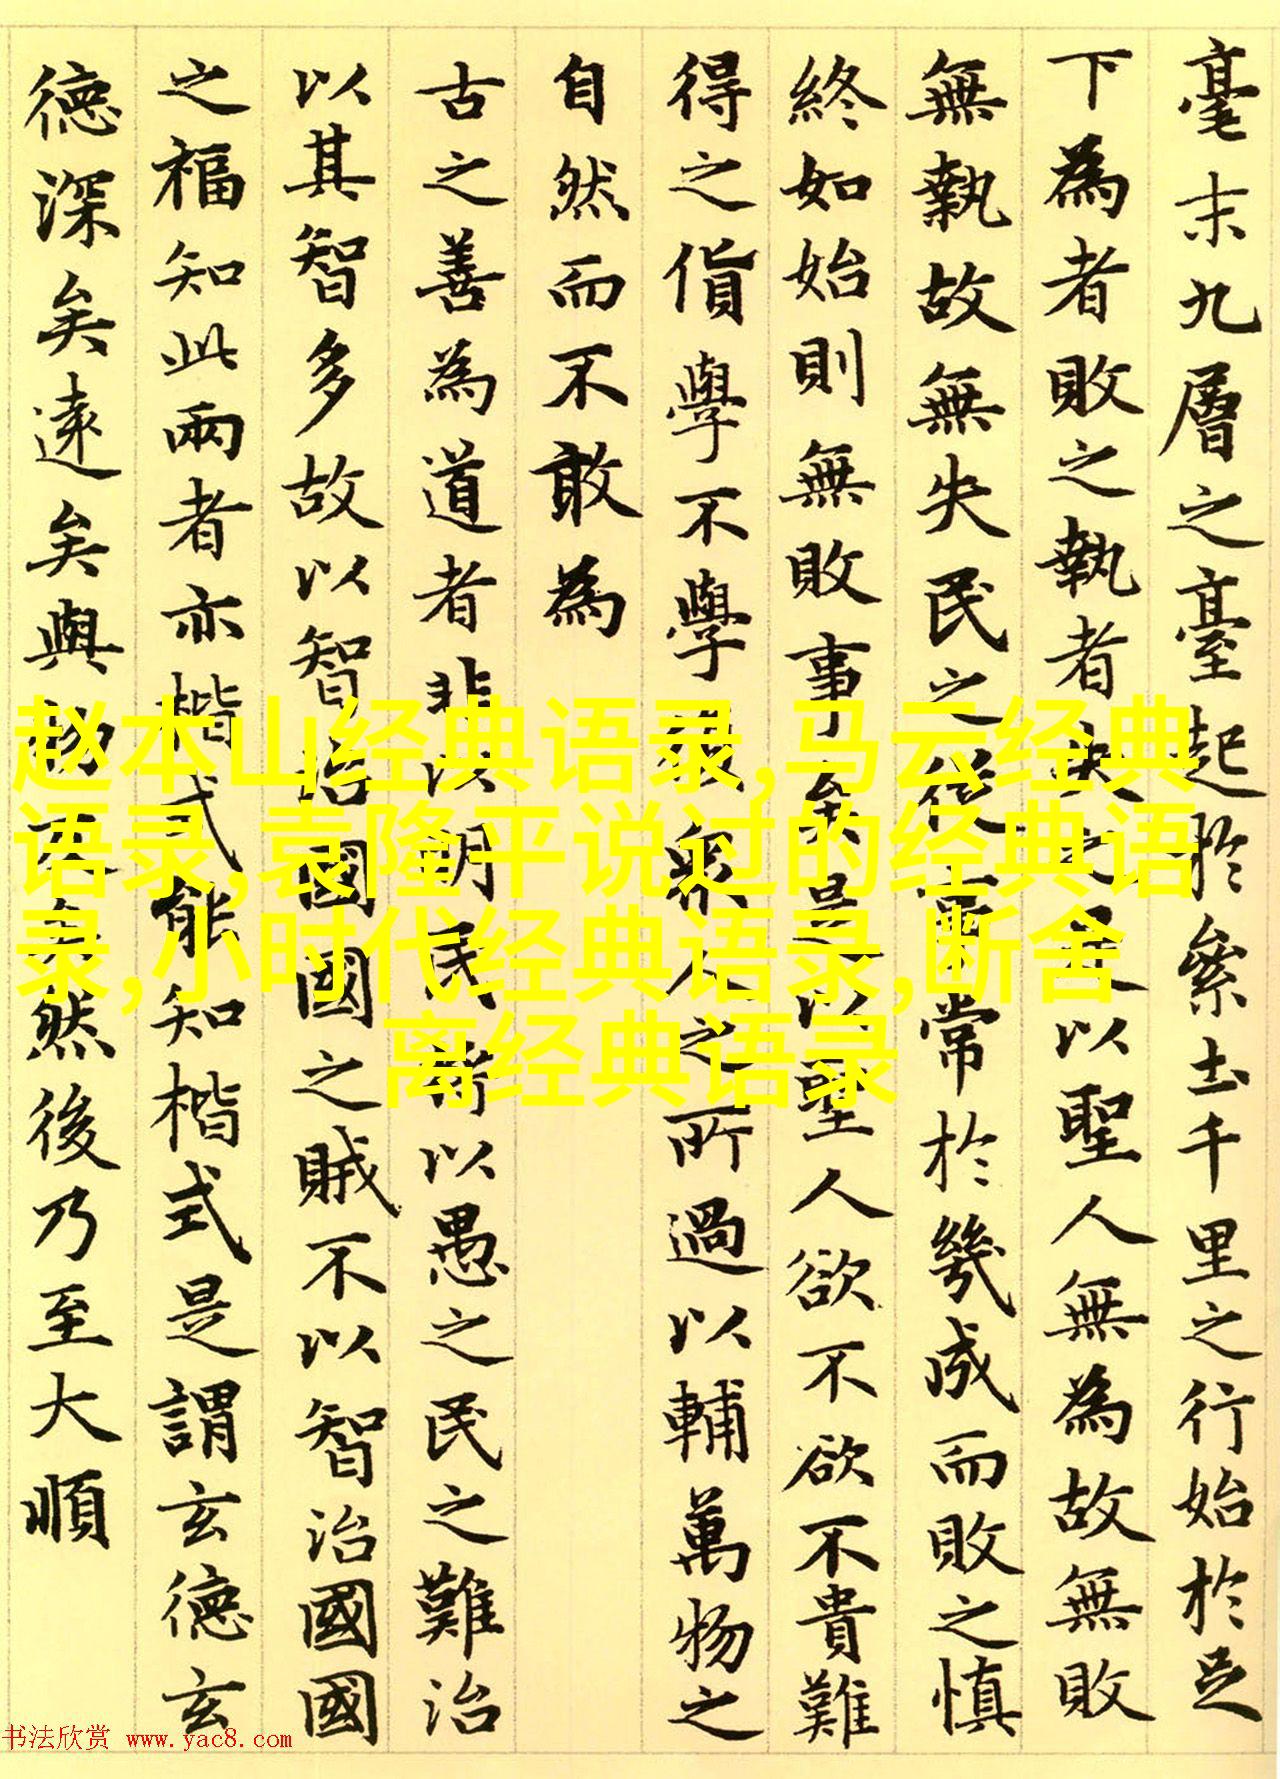 毫末九層之臺起於絫土千里之行始於足
下為者敗之執者失之是以聖人無為故無敗
無執故無失民之從事常於幾成而敗之慎
終如始則無敗事矣是以聖人欲不欲不貴難
得之貨學不學復衆人之所過以輔萬物之
自然而不敢為
古之善為道者非以明民將以愚之民之難治
以其智多故以智治國國之賊不以智治國國
之福知此兩者亦楷式能知楷式是謂玄德玄
德深矣遠矣與物反矣然後乃至大順
赵本山经典语录,马云经典
语录,袁隆平说过的经典语
录,小时代经典语录,断舍
离经典语录
书法欣赏 www.yac8.com